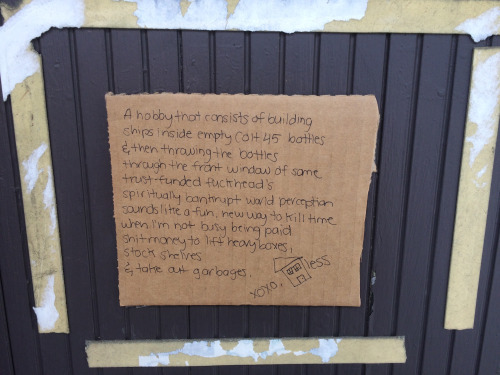 A hobby that consists of building
ships inside empty Colt 45 bottles
& then throwing the bottles
through the front window of some
trust-funded fuckhead's
spiritually bankrupt world perception
sounds like a fun, new way to kill time
when I'm not busy being paid
shit money to lift heavy boxes,
stock shelves
& take out garbages.
xoxo, less